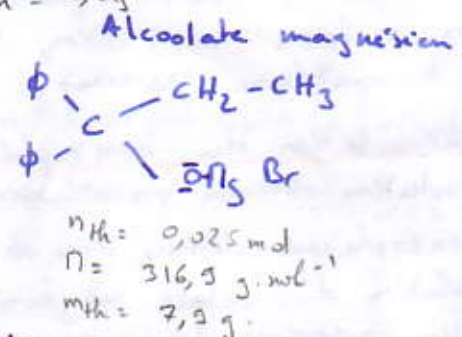 Alcoolate magnésien
ϕ CH2-CH3
C
ϕ OMg Br
nth = 0,025 mol
M = 316,9 g.mol-1
mth = 7,9 g.